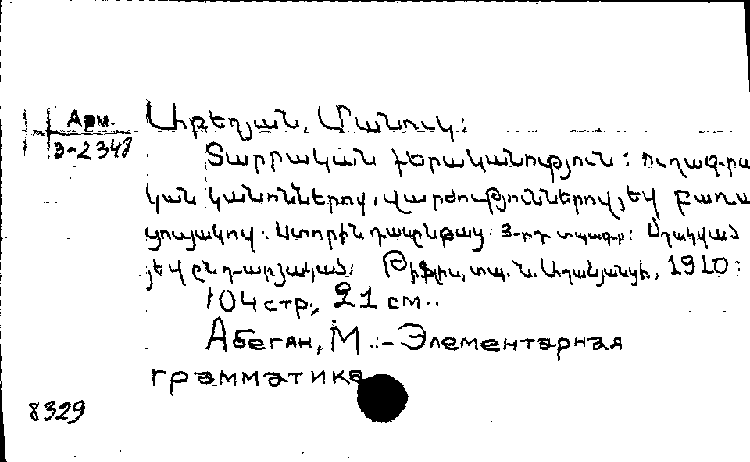 Арм.
3-2348
Աբեղյան, Մանուկ:
Տարրական քերականություն: ուղագրա
կան կանոններով, վարժություններով, եվ բառա
ցուցակով. Ստորին դասընթաց 3-րդ տպագր: Մշակված
եվ ընդարձակված Թիֆլիս, տպ. Ն. Աղանյանցի, 1910:
104 стр., 21 см..
Абегян, М.:- Элементарная
грамматика
8329